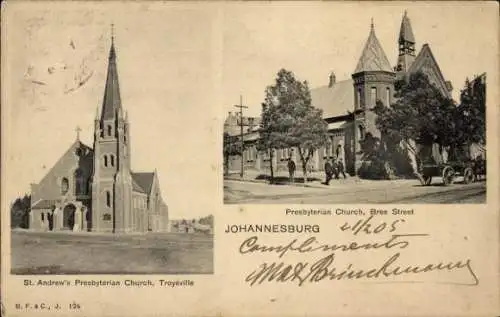 Presbyterian Church, Bree Street
JOHANNESBURG 21/2 05
Compliments
Max Brinckmann
St. Andrew's Presbyterian Church, Troyeville
B. F. & C., J. 124